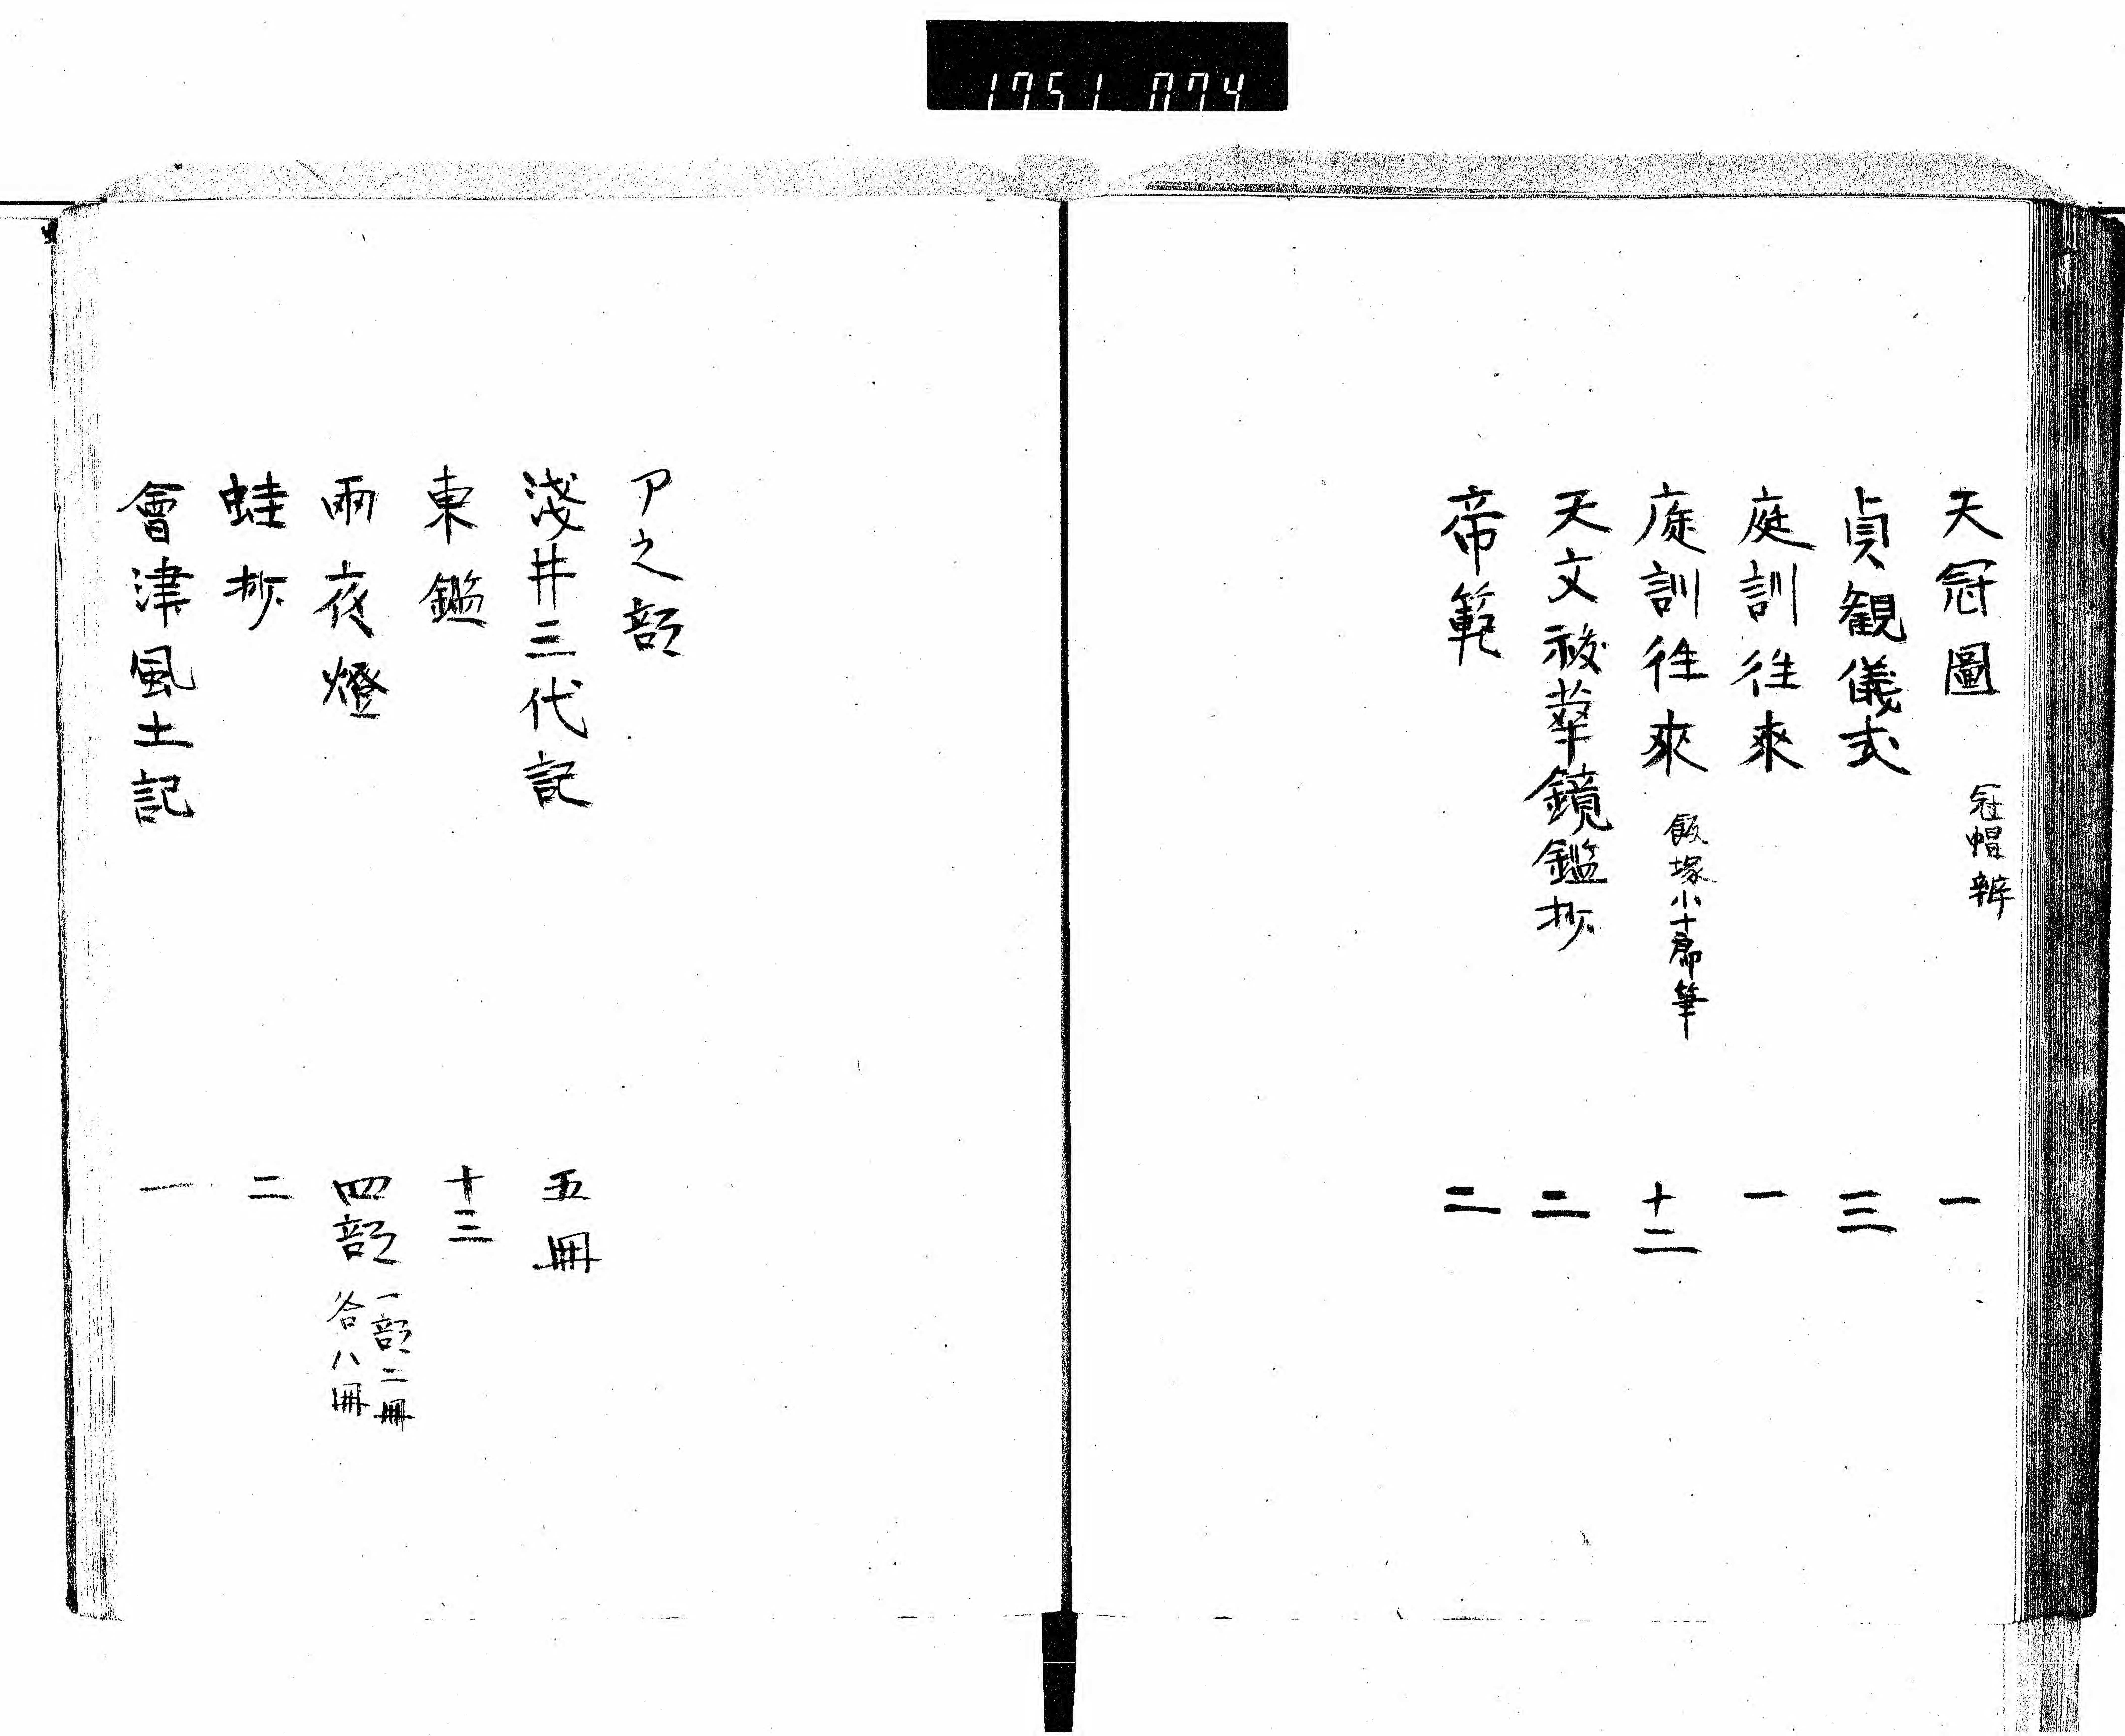 1751 074
天冠圖 冠帽辨 一
貞観儀式 三
庭訓往来 一
庭訓往來 飯塚小十郎筆 十二
天文秘蕐鏡鑑抄 二
帝範 二
ア之部
淺井三代記 五冊
東鑑 十三
雨夜燈 四部 一部二冊
各八冊
蛙抄 二
會津風土記 一